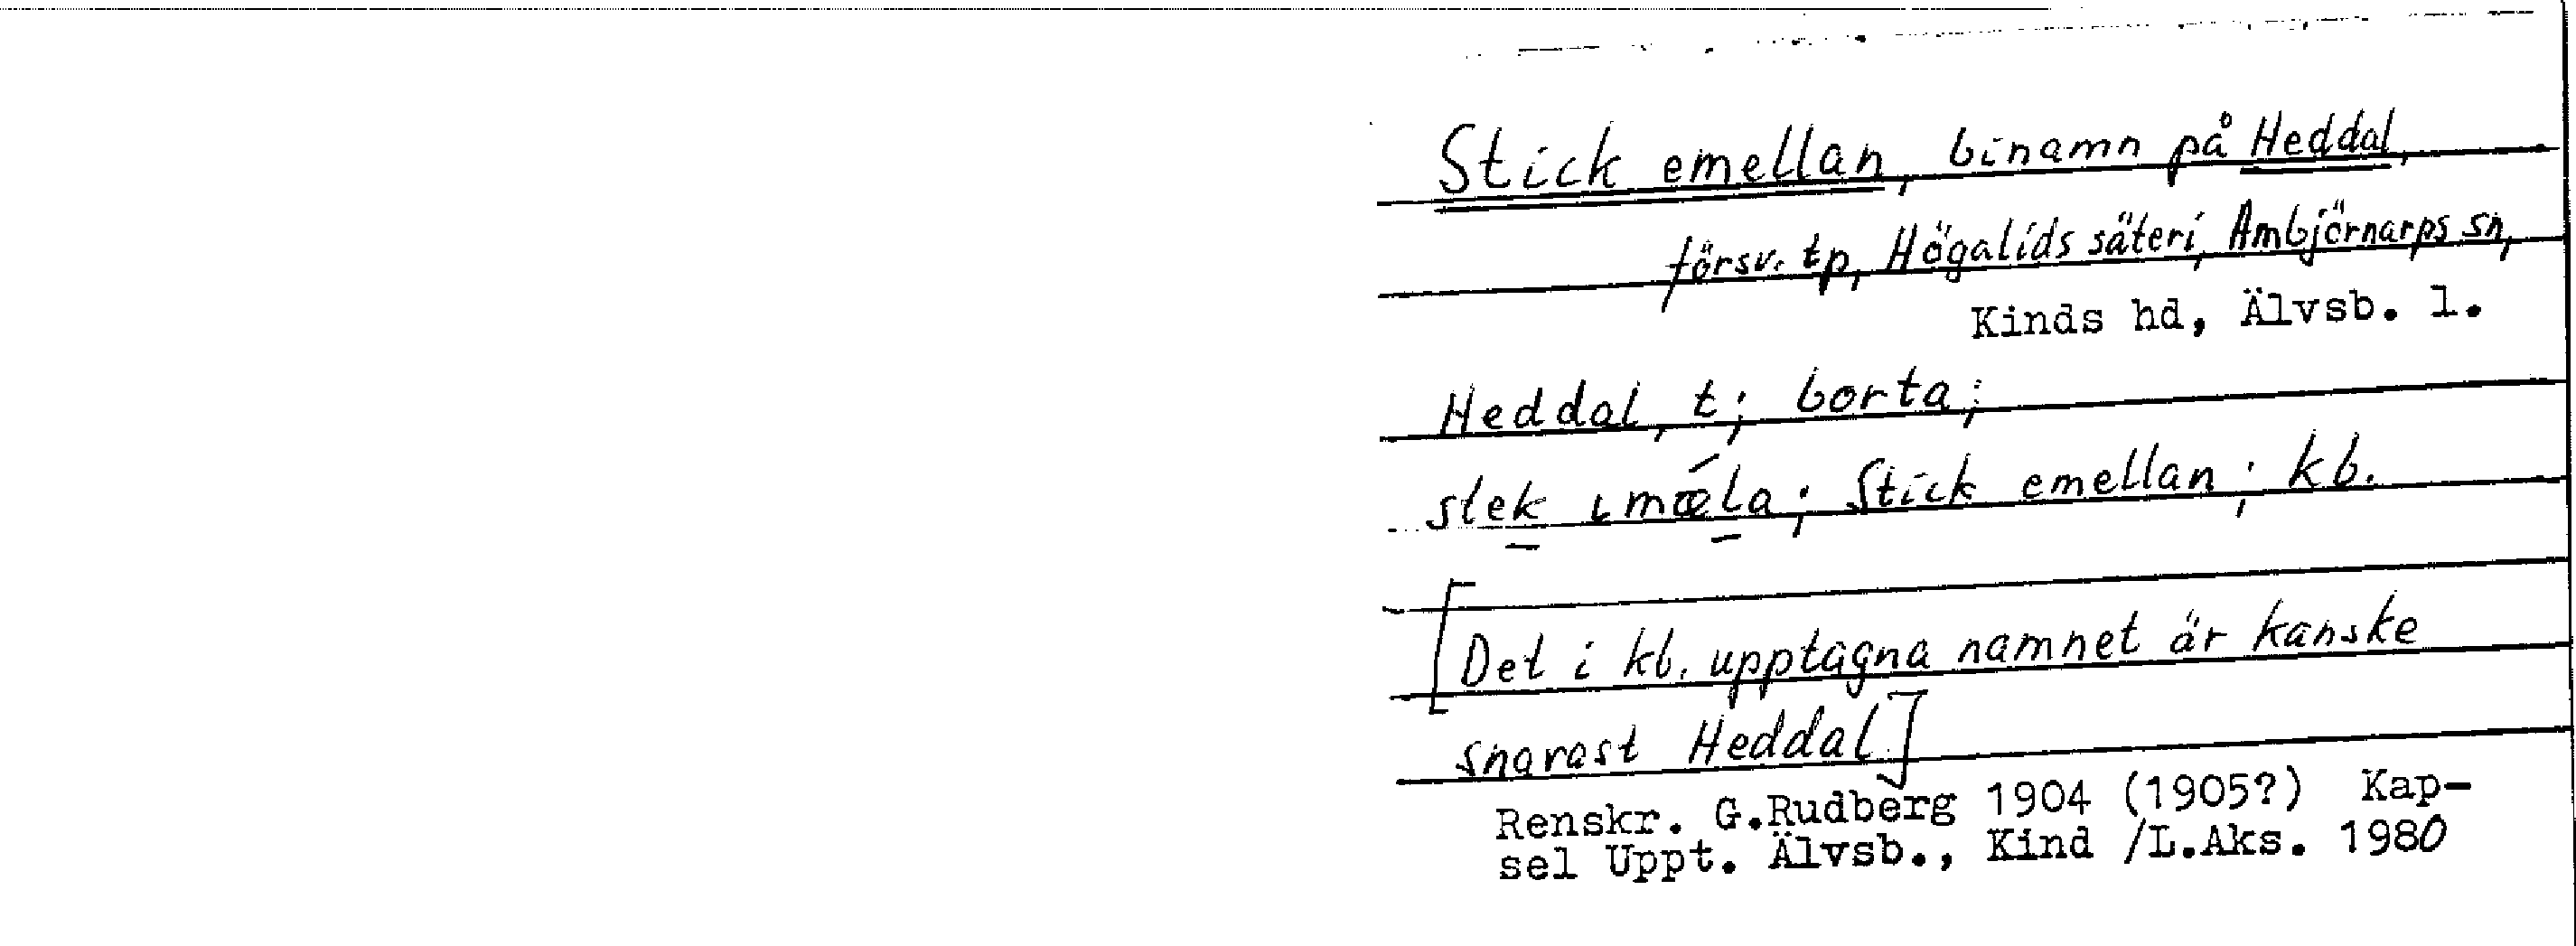 Stick emellan, binamn på Heddal,
försv. tp, Högalids säteri, Ambjörnarps sn,
Kinds hd, Älvsb. l.
Heddal, t; borta;
stek ımǽla; Stick emellan; kb.
[Det i kb. upptagna namnet är kanske
snarast Heddal]
Renskr. G.Rudberg 1904 (1905?) Kap-
sel Uppt. Älvsb., Kind /L.Aks. 1980